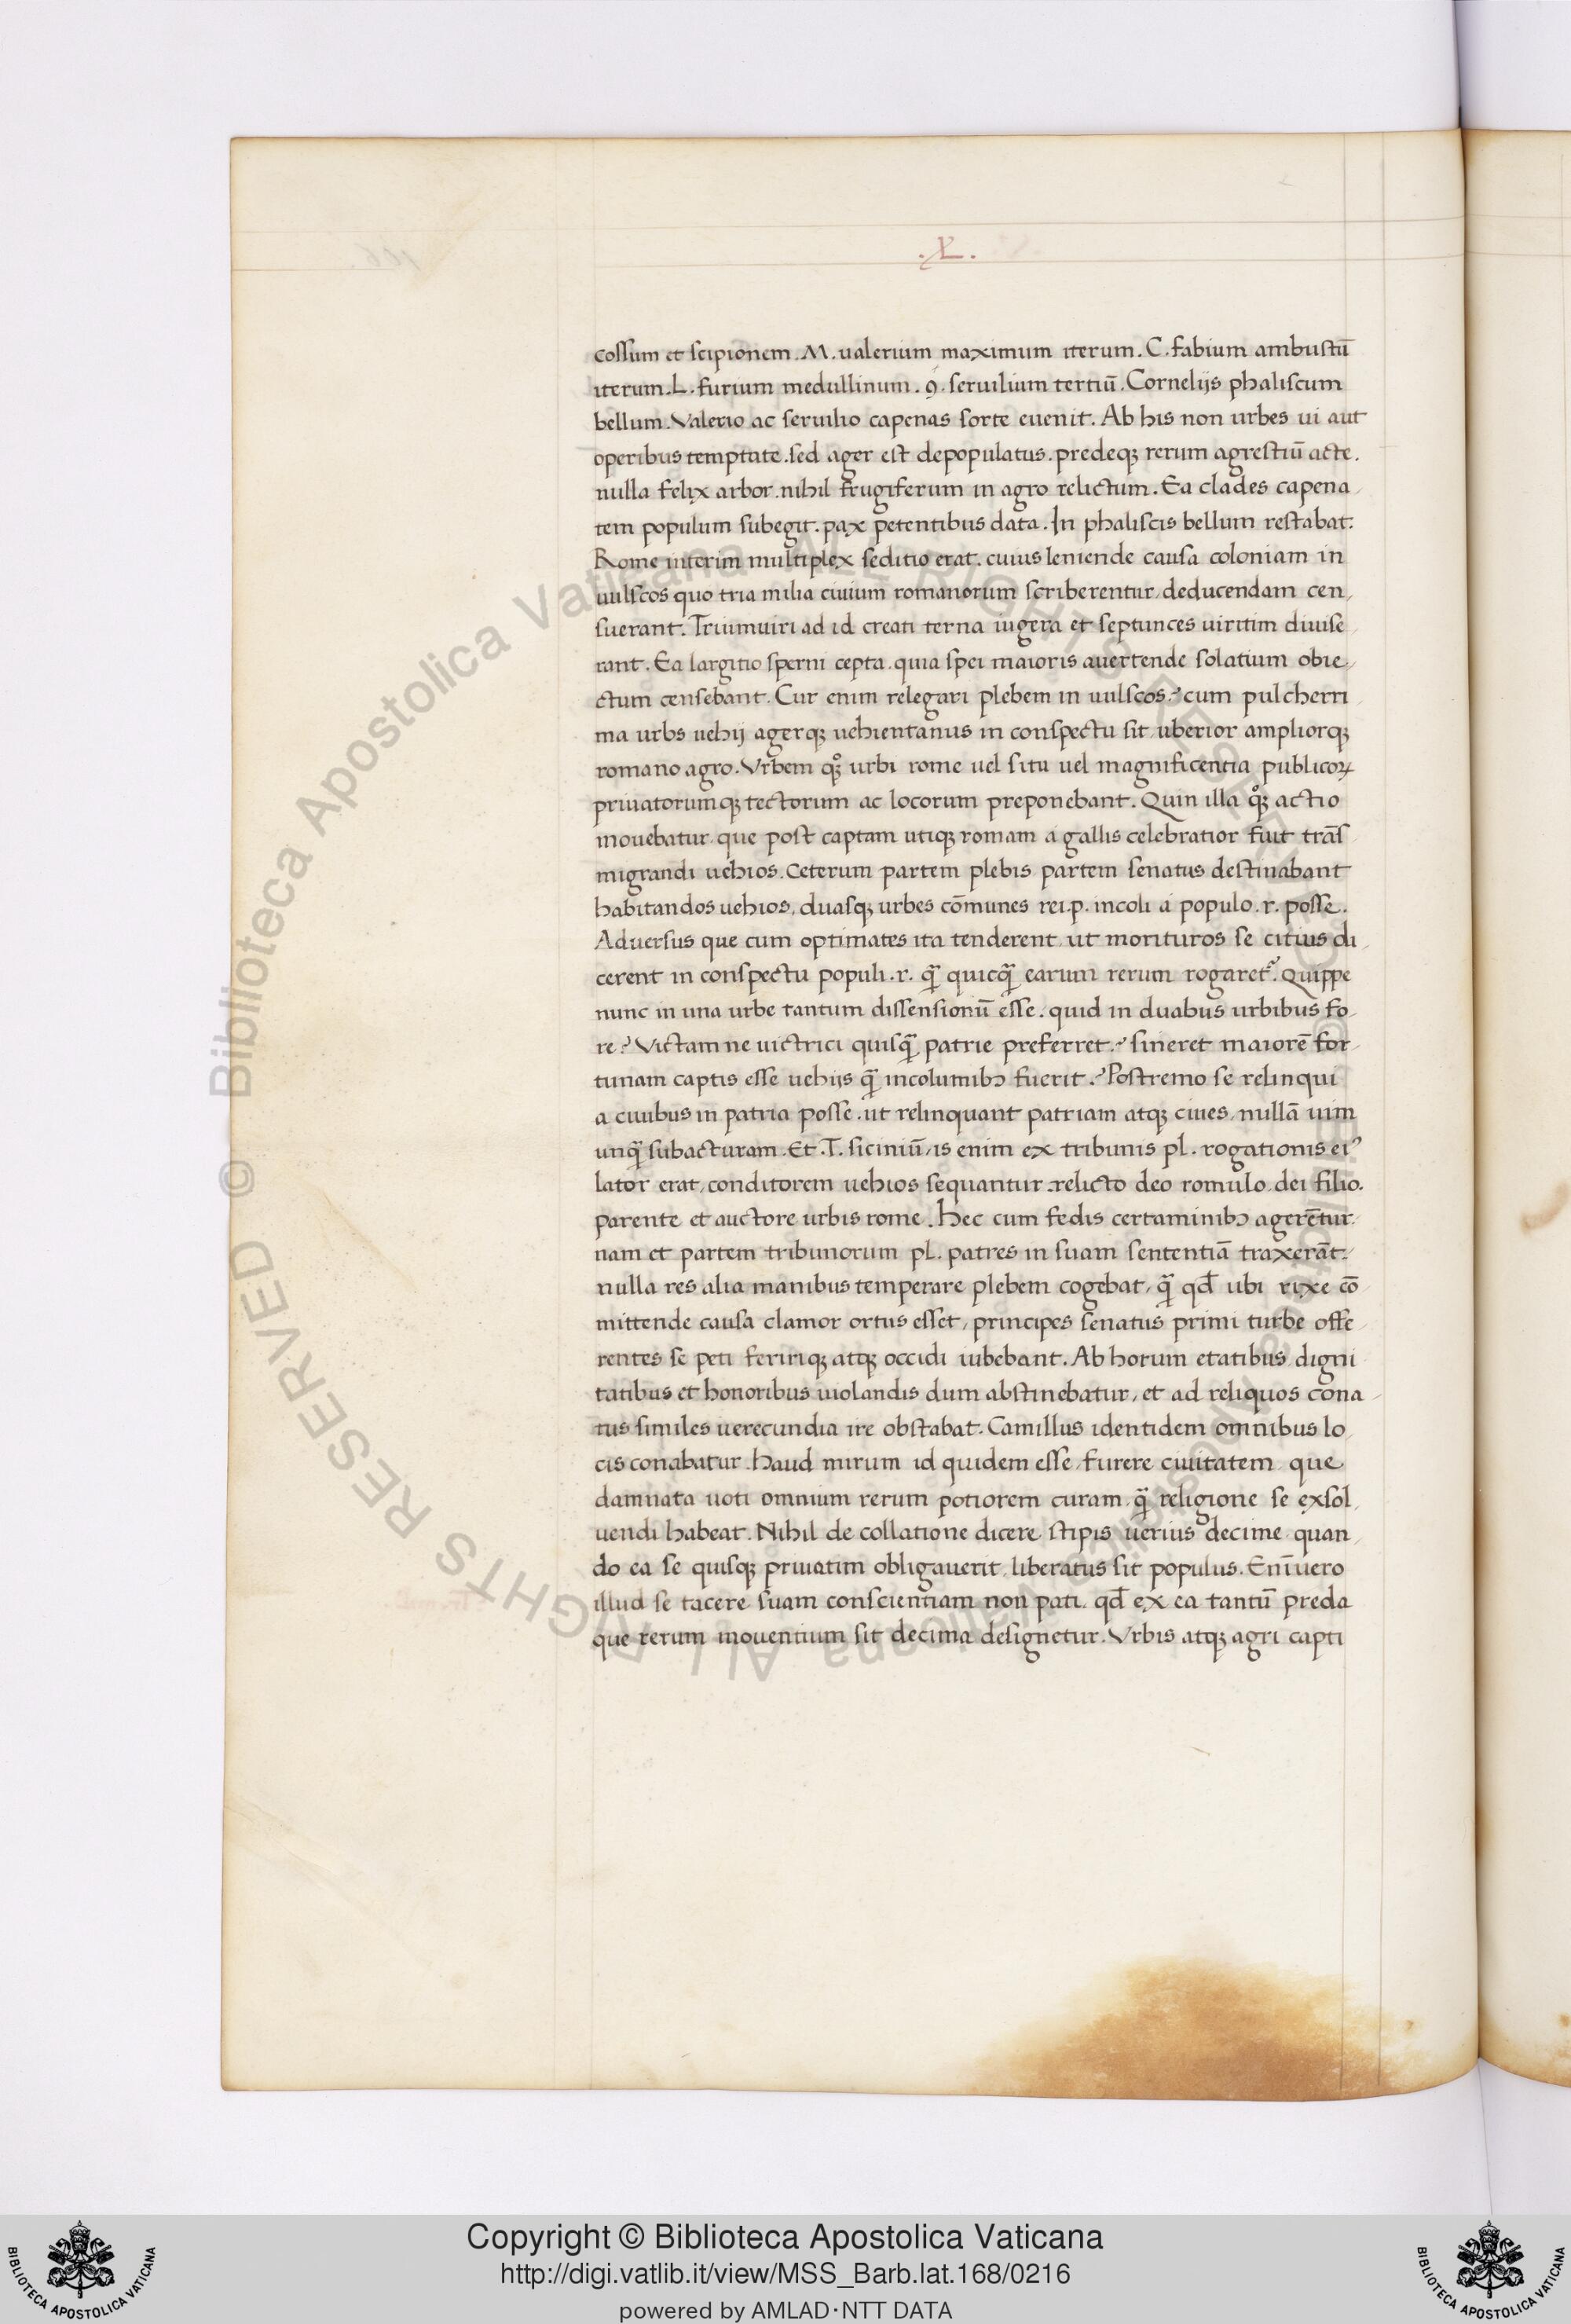 .X.
cossum et scipionem. M. ualerium maximum iterum. C. fabium ambustū
iterum. L. furium medullinum. q. seruilium tertiū. Cornelijs phaliscum
bellum. Valerio ac seruilio capenas sorte euenit. Ab his non urbes ui aut
operibus temptate. sed ager est depopulatus. predeq; rerum agrestiū acte.
nulla felix arbor. nihil frugiferum in agro relictum. Ea clades capena
tem populum subegit. pax petentibus data. In phaliscis bellum restabat.
Rome interim multiplex seditio erat. cuius leniende causa coloniam in
uulscos quo tria milia ciuium romanorum scriberentur, deducendam cen,
suerant. Triumuiri ad id creati terna iugera et septunces uiritim diuise
rant. Ea largitio sperni cepta. quia spei maioris auertende solatium obie,
ctum censebant. Cur enim relegari plebem in uulscos? cum pulcherri
ma urbs uehij agerq; uehientanus in conspectu sit, uberior ampliorq;
romano agro. Vrbem qͦq; urbi rome uel situ uel magnificentia publicoꝝ
priuatorumq; tectorum ac locorum preponebant. Quin illa qͦq; actio
mouebatur. que post captam utiq; romam a gallis celebratior fuit trāſ
migrandi uehios. Ceterum partem plebis partem senatus destinabant
habitandos uehios, duasq; urbes cōmunes rei.p. incoli a populo. r. posse.
Aduersus que cum optimates ita tenderent. ut morituros se citius di
cerent in conspectu populi. r. qᷓ quicqᷓ earum rerum rogaret᷑. Quippe
nunc in una urbe tantum dissensionū esse. quid in duabus urbibus fo
re? Victam ne uictrici quisqᷓ patrie preferret? sineret maiorē for
tunam captis esse uehijs qᷓ incolumibꝫ fuerit? Postremo se relinqui
a ciuibus in patria posse. ut relinquant patriam atq; ciues, nullā uim
unqᷓ subacturam. Et. T. siciniū, is enim ex tribunis pl. rogationis ei⁹
lator erat, conditorem uehios sequantur. relicto deo romulo. dei filio.
parente et auctore urbis rome. Hec cum fedis certaminibꝫ agerētur.
nam et partem tribunorum pl. patres in suam sententiā traxerāt.
nulla res alia manibus temperare plebem cogebat, qᷓ qđ ubi rixe cō
mittende causa clamor ortus esset, principes senatus primi turbe offe
rentes se peti feririq; atq; occidi iubebant. Ab horum etatibus digni
tatibus et honoribus uiolandis dum abstinebatur, et ad reliquos cona
tus similes uerecundia ire obstabat. Camillus identidem omnibus lo
cis conabatur. haud mirum id quidem esse, furere ciuitatem que
damnata uoti omnium rerum potiorem curam. qᷓ religione se exsol,
uendi habeat. Nihil de collatione dicere stipis uerius decime quan
do ea se quisq; priuatim obligauerit. liberatus sit populus. Enīuero
illud se tacere suam conscientiam non pati. qđ ex ea tantū preda
que rerum mouentium sit decima designetur. Vrbis atq; agri capti
© Biblioteca Apostolica Vaticana ALL RIGHTS RESERVED
BIBLIOTECA APOSTOLICA VATICANA
Copyright © Biblioteca Apostolica Vaticana
http://digi.vatlib.it/view/MSS_Barb.lat.168/0216
powered by AMLAD·NTT DATA
BIBLIOTECA APOSTOLICA VATICANA